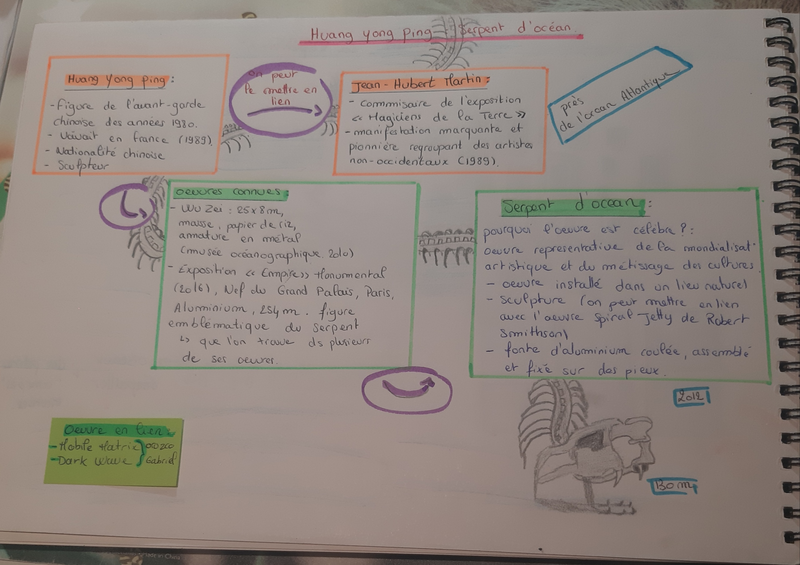 Huang yong ping Serpent d'océan.
Huang Yong ping :
- Figure de l'avant-garde
chinoise des années 1980.
- Vivait en france (1989).
- Nationalité chinoise
- Sculpteur
on peut
le mettre en
lien
Jean-Hubert Martin :
- commmissaire de l'exposition
« Magiciens de la Terre »
- manifestation marquante et
pionnière regroupant des artistes
non-occidentaux (1989).
près
de l'océan Atlantique
oeuvres connues :
- Wu Zei : 25x8m,
masse, papier de riz,
armature en métal
(musée océanographique 2010)
- Exposition « Empire » Monumental
(2016), Nef du Grand Palais, Paris,
Aluminium, 254 m. figure
emblématique du serpent
↳ que l'on trouve ds plusieurs
de ses oeuvres.
Serpent d'ocean :
pourquoi l'oeuvre est célèbre ? :
oeuvre representative de la mondialisat°
artistique et du métissage des cultures.
- oeuvre installé dans un lieu naturel
- sculpture (on peut mettre en lien
avec l'oeuvre Spiral Jetty de Robert
Smithson)
- fonte d'aluminium coulée, assemblé
et fixé sur des pieux.
2012
130 m
Oeuvre en lien :
- Mobile Matrix } Orozco
- Dark Wave } Gabriel